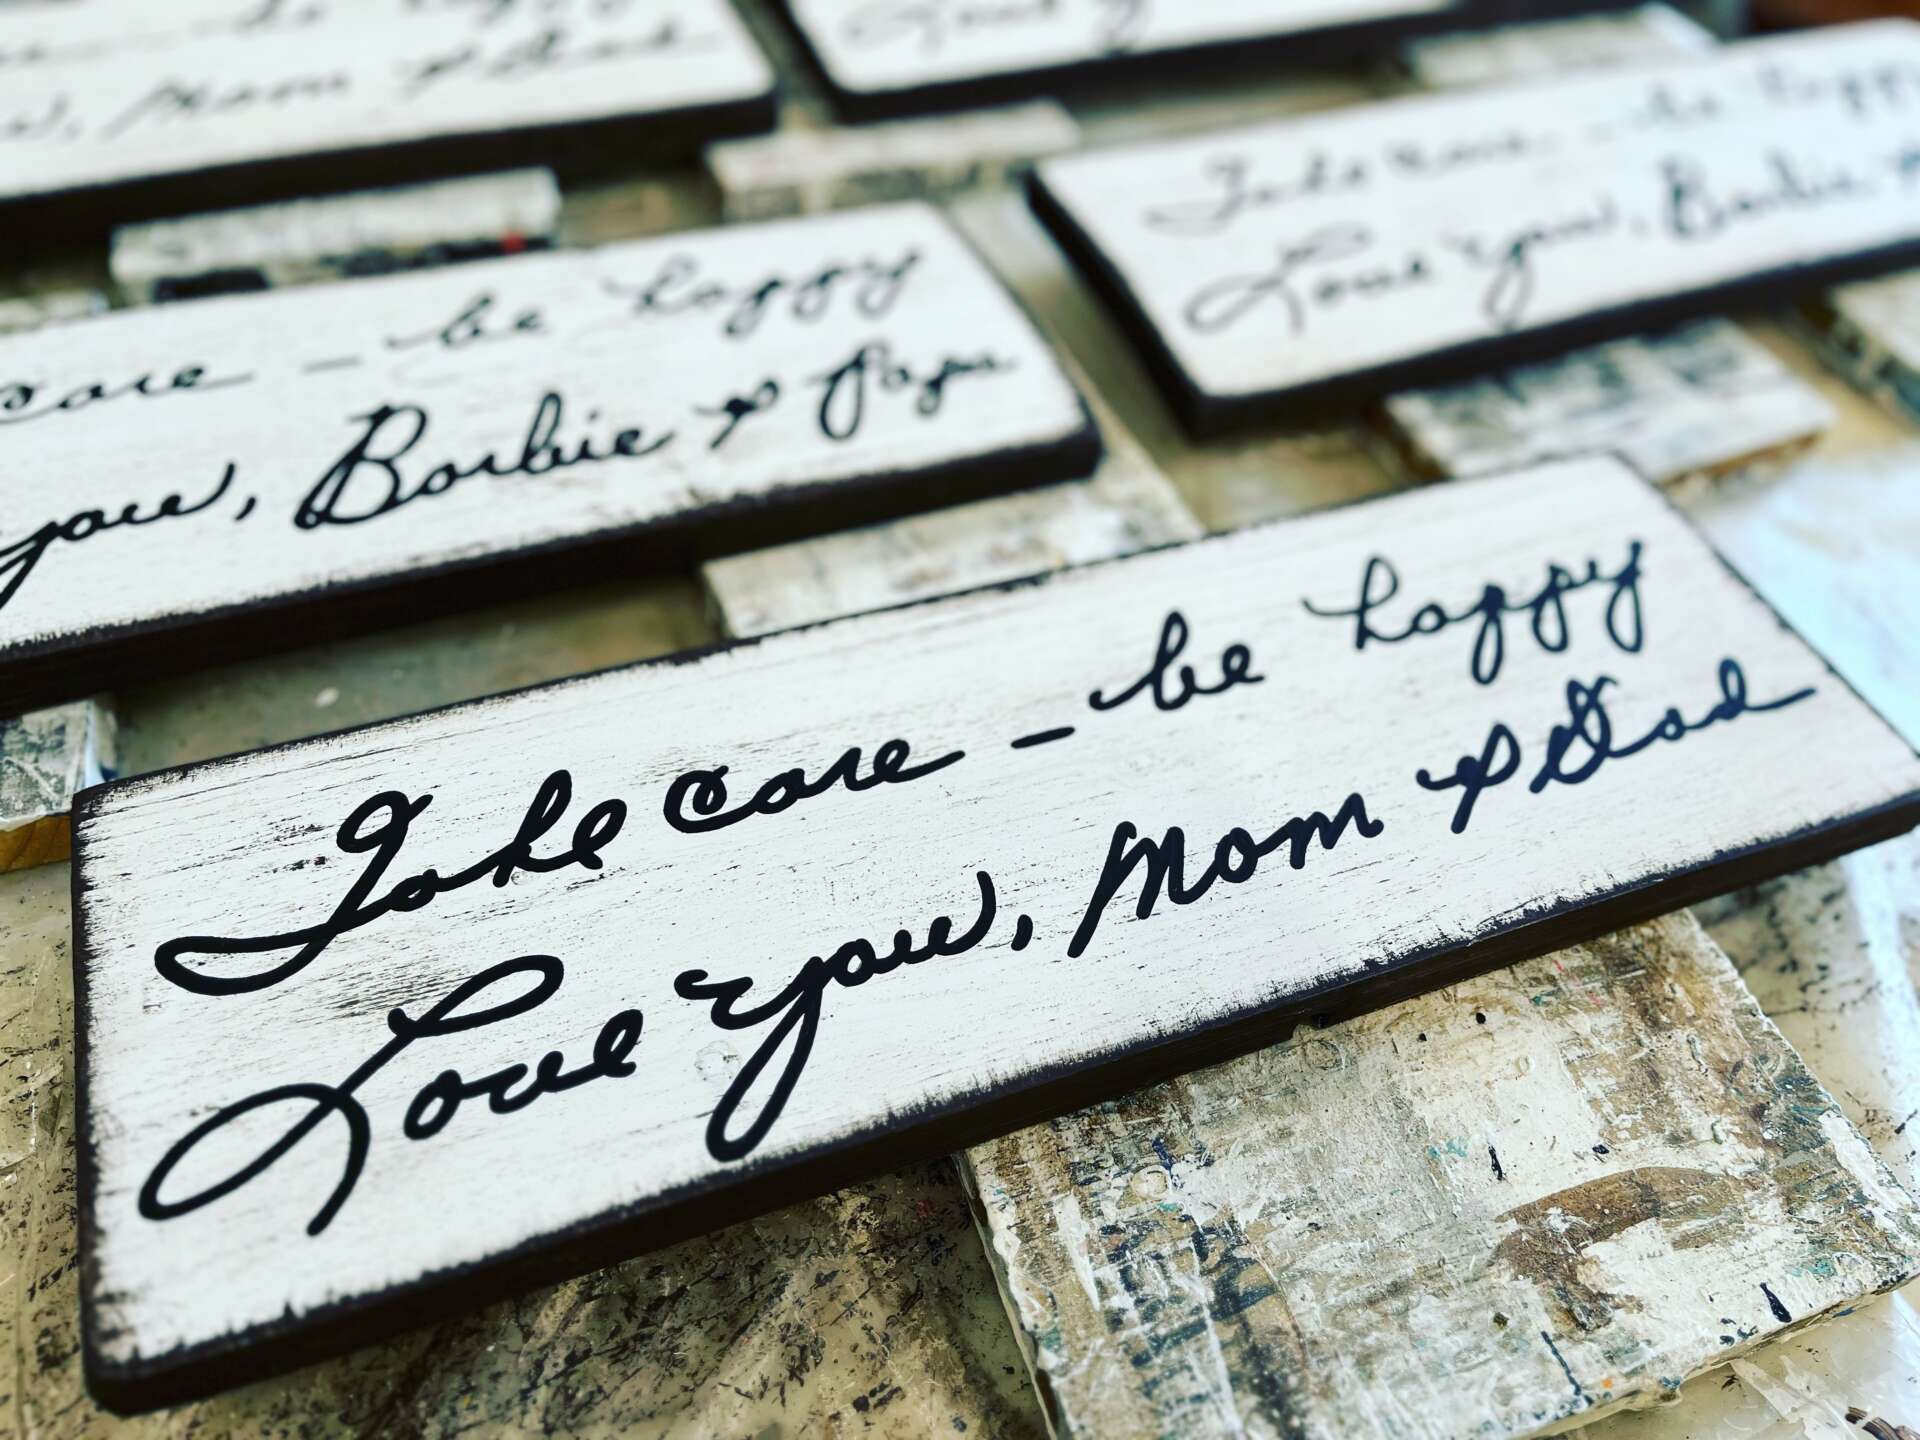 Mom & Dad
Take care - be happy
Love you, Barbie
care - be happy
you, Barbie & Papa
Take care - be happy
Love you, Mom & Dad